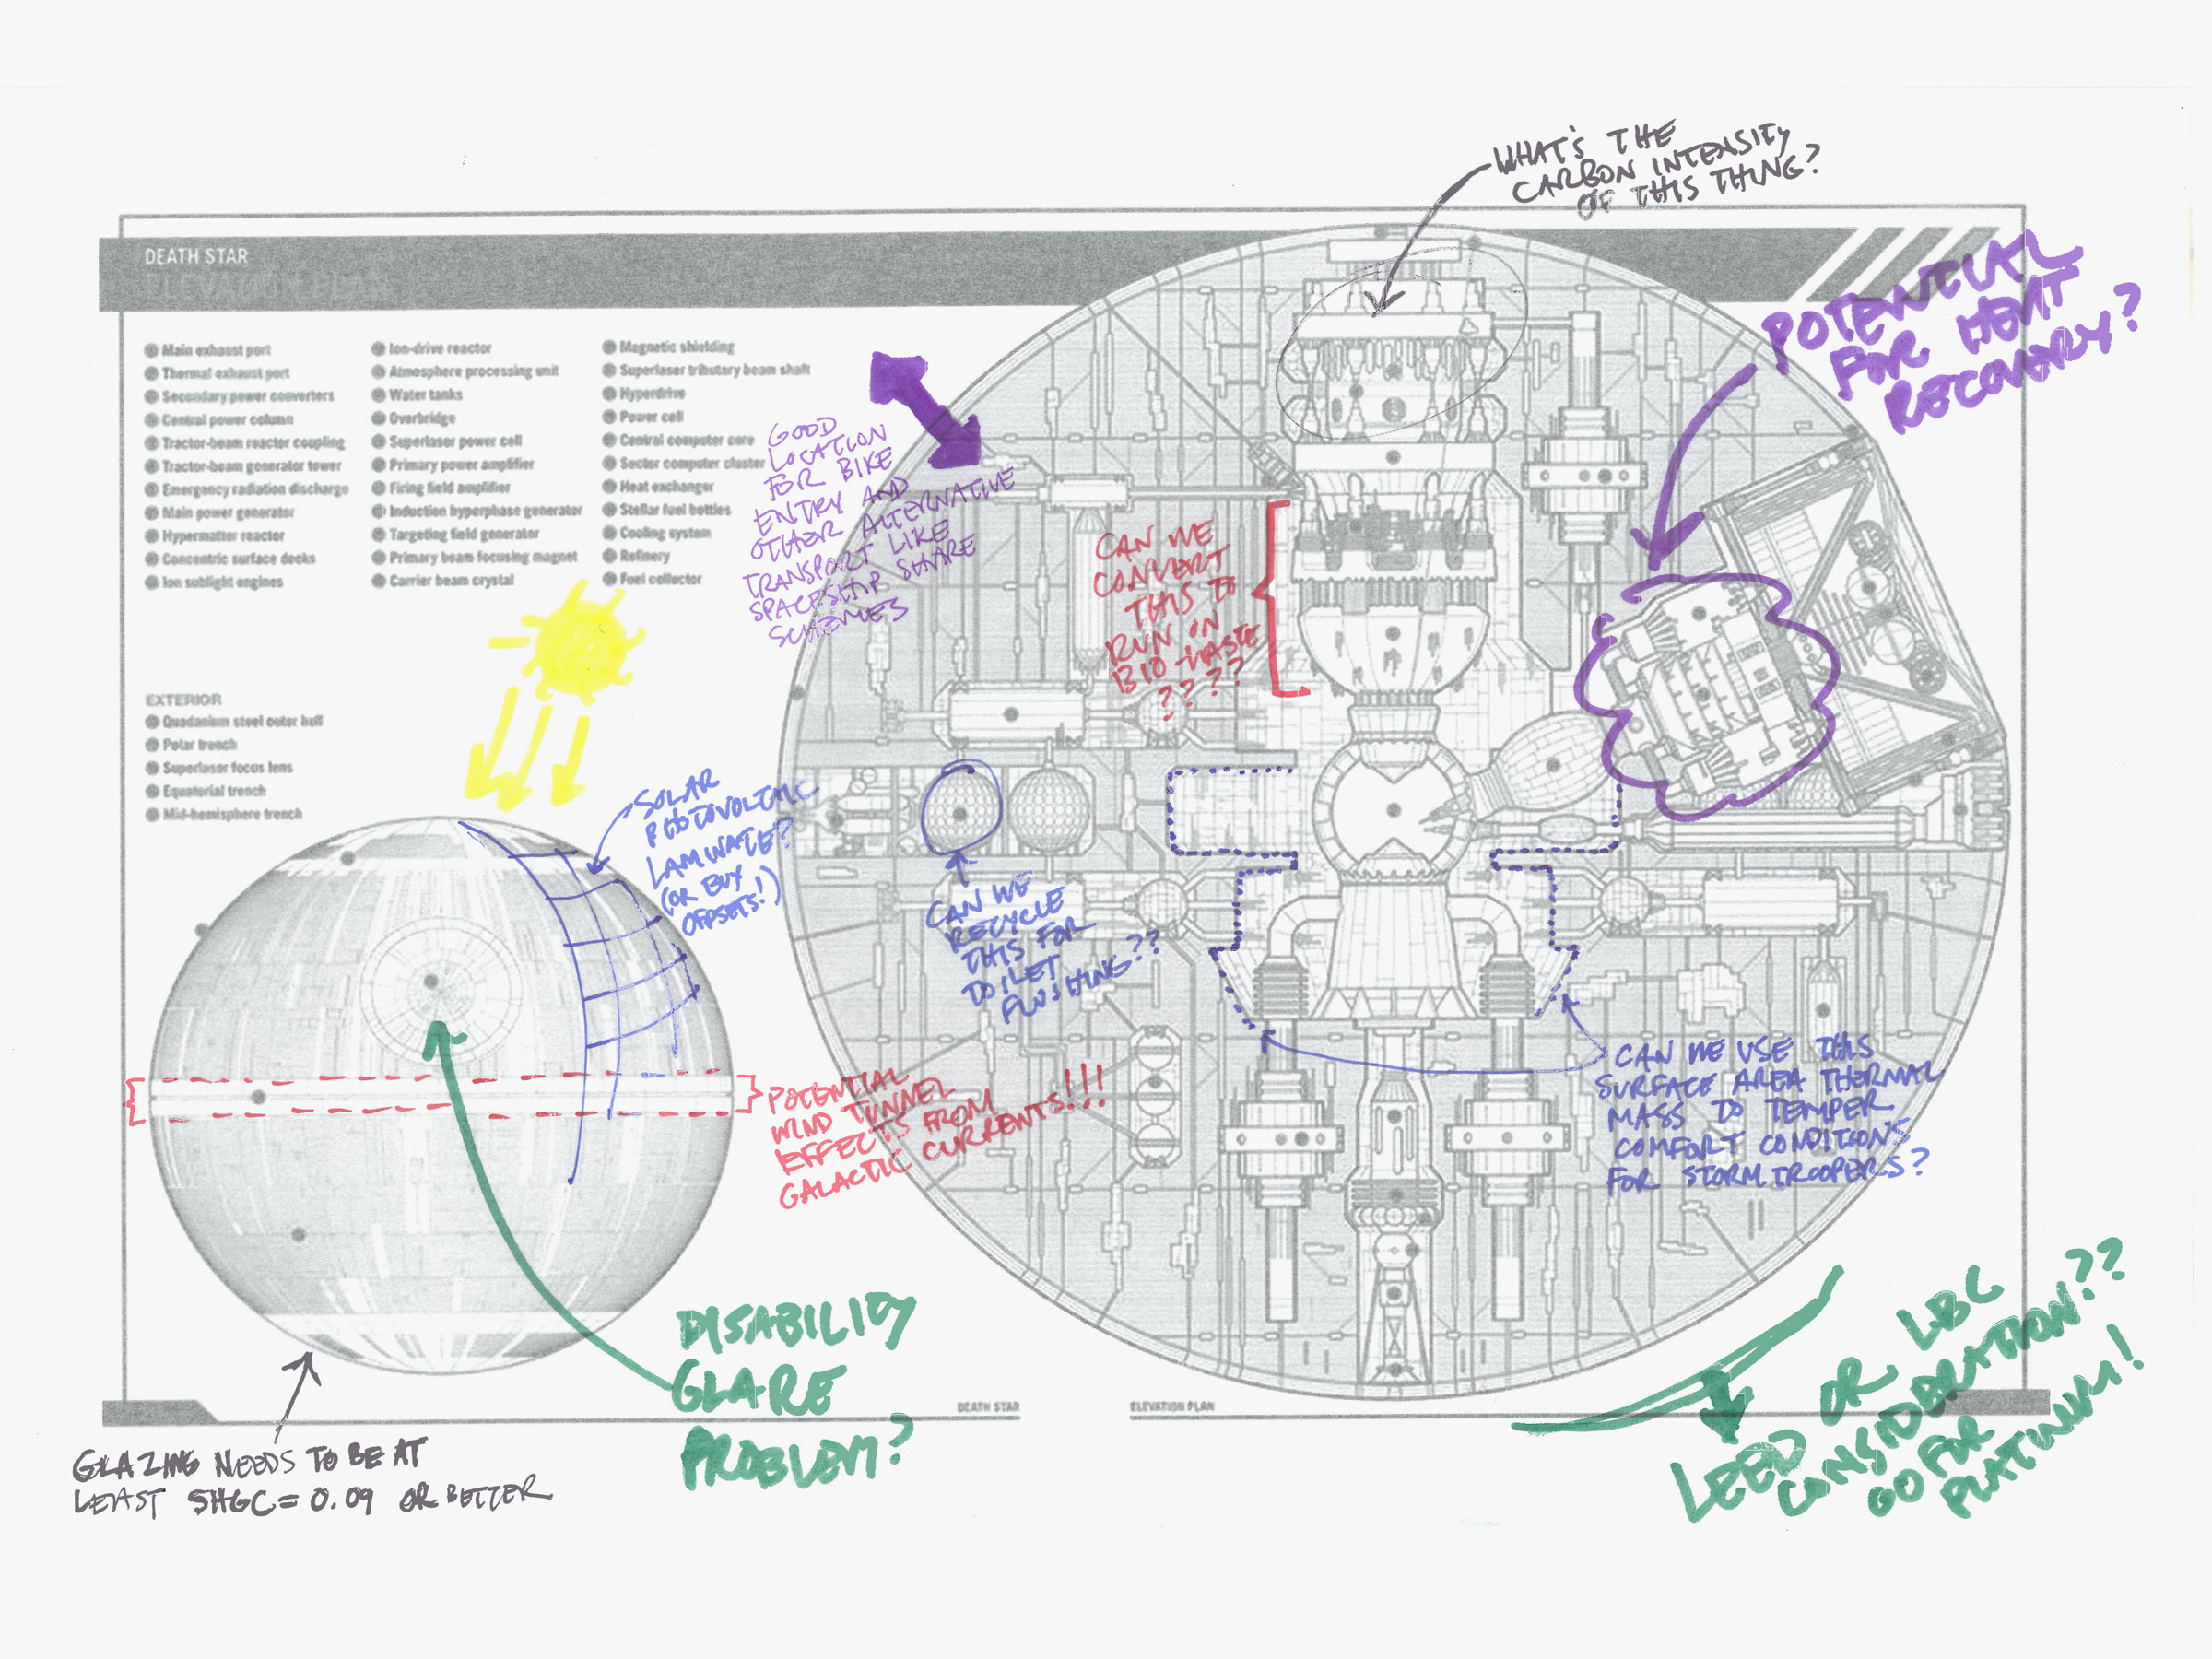 WHAT'S THE
CARBON INTENSITY
OF THIS THING?
DEATH STAR
ELEVATION PLAN
POTENTIAL
FOR HEAT
RECOVERY?
Main exhaust port
Thermal exhaust port
Secondary power converters
Central power column
Tractor-beam reactor coupling
Tractor-beam generator tower
Emergency radiation discharge
Main power generator
Hypermatter reactor
Concentric surface decks
Ion sublight engines
Ion-drive reactor
Atmosphere processing unit
Water tanks
Overbridge
Superlaser power cell
Primary power amplifier
Firing field amplifier
Induction hyperphase generator
Targeting field generator
Primary beam focusing magnet
Carrier beam crystal
Magnetic shielding
Superlaser tributary beam shaft
Hyperdrive
Power cell
Central computer core
Sector computer cluster
Heat exchanger
Stellar fuel bottles
Cooling system
Refinery
Fuel collector
GOOD
LOCATION
FOR BIKE
ENTRY AND
OTHER ALTERNATIVE
TRANSPORT LIKE
SPACESHIP SHARE
SCHEMES
CAN WE
CONVERT
THIS TO
RUN ON
BIO-WASTE
????
EXTERIOR
Quadanium steel outer hull
Polar trench
Superlaser focus lens
Equatorial trench
Mid-hemisphere trench
SOLAR
PHOTOVOLTAIC
LAMINATE?
(OR BUY
OFFSETS!)
CAN WE
RECYCLE
THIS FOR
TOILET
FLUSHING??
POTENTIAL
WIND TUNNEL
EFFECTS FROM
GALACTIC CURRENTS!!!
CAN WE USE THIS
SURFACE AREA THERMAL
MASS TO TEMPER
COMFORT CONDITIONS
FOR STORMTROOPERS?
DISABILITY
GLARE
PROBLEM?
DEATH STAR
ELEVATION PLAN
LEED OR LBC
CONSIDERATION??
GO FOR
PLATINUM!
GLAZING NEEDS TO BE AT
LEAST SHGC = 0.09 OR BETTER